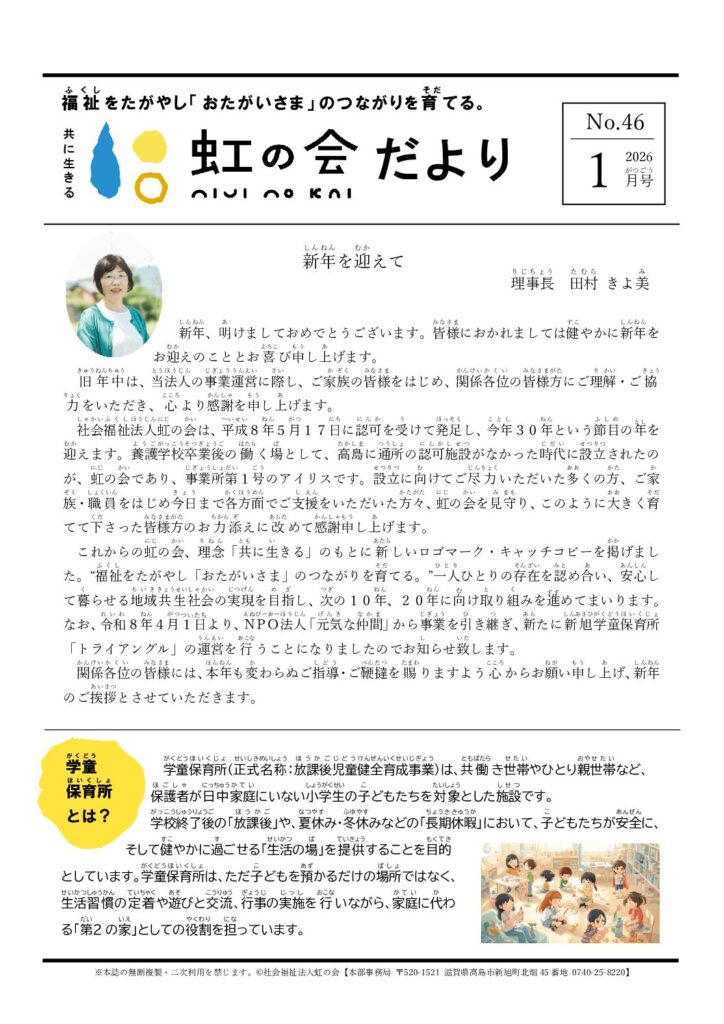 福祉をたがやし「おたがいさま」のつながりを育てる。
共に生きる
虹の会 だより
niji no kai
No.46
1
2026
月号
新年を迎えて
理事長 田村 きよ美
新年、明けましておめでとうございます。皆様におかれましては健やかに新年を
お迎えのこととお喜び申し上げます。
旧年中は、当法人の事業運営に際し、ご家族の皆様をはじめ、関係各位の皆様方にご理解・ご協
力をいただき、心より感謝を申し上げます。
社会福祉法人虹の会は、平成8年5月17日に認可を受けて発足し、今年30年という節目の年を
迎えます。養護学校卒業後の働く場として、高島に通所の認可施設がなかった時代に設立されたの
が、虹の会であり、事業所第1号のアイリスです。設立に向けてご尽力いただいた多くの方、ご家
族・職員をはじめ今日まで各方面でご支援をいただいた方々、虹の会を見守り、このように大きく育
てて下さった皆様方のお力添えに改めて感謝申し上げます。
これからの虹の会、理念「共に生きる」のもとに新しいロゴマーク・キャッチコピーを掲げまし
た。“福祉をたがやし「おたがいさま」のつながりを育てる。”一人ひとりの存在を認め合い、安心し
て暮らせる地域共生社会の実現を目指し、次の10年、20年に向け取り組みを進めてまいります。
なお、令和8年4月1日より、NPO法人「元気な仲間」から事業を引き継ぎ、新たに新旭学童保育所
「トライアングル」の運営を行うことになりましたのでお知らせ致します。
関係各位の皆様には、本年も変わらぬご指導・ご鞭撻を賜りますよう心からお願い申し上げ、新年
のご挨拶とさせていただきます。
学童
保育所
とは?
学童保育所(正式名称:放課後児童健全育成事業)は、共働き世帯やひとり親世帯など、
保護者が日中家庭にいない小学生の子どもたちを対象とした施設です。
学校終了後の「放課後」や、夏休み・冬休みなどの「長期休暇」において、子どもたちが安全に、
そして健やかに過ごせる「生活の場」を提供することを目的
としています。学童保育所は、ただ子どもを預かるだけの場所ではなく、
生活習慣の定着や遊びと交流、行事の実施を行いながら、家庭に代わ
る「第2の家」としての役割を担っています。
※本誌の無断複製・二次利用を禁じます。©社会福祉法人虹の会【本部事務局 〒520-1521 滋賀県高島市新旭町北畑45番地 0740-25-8220】